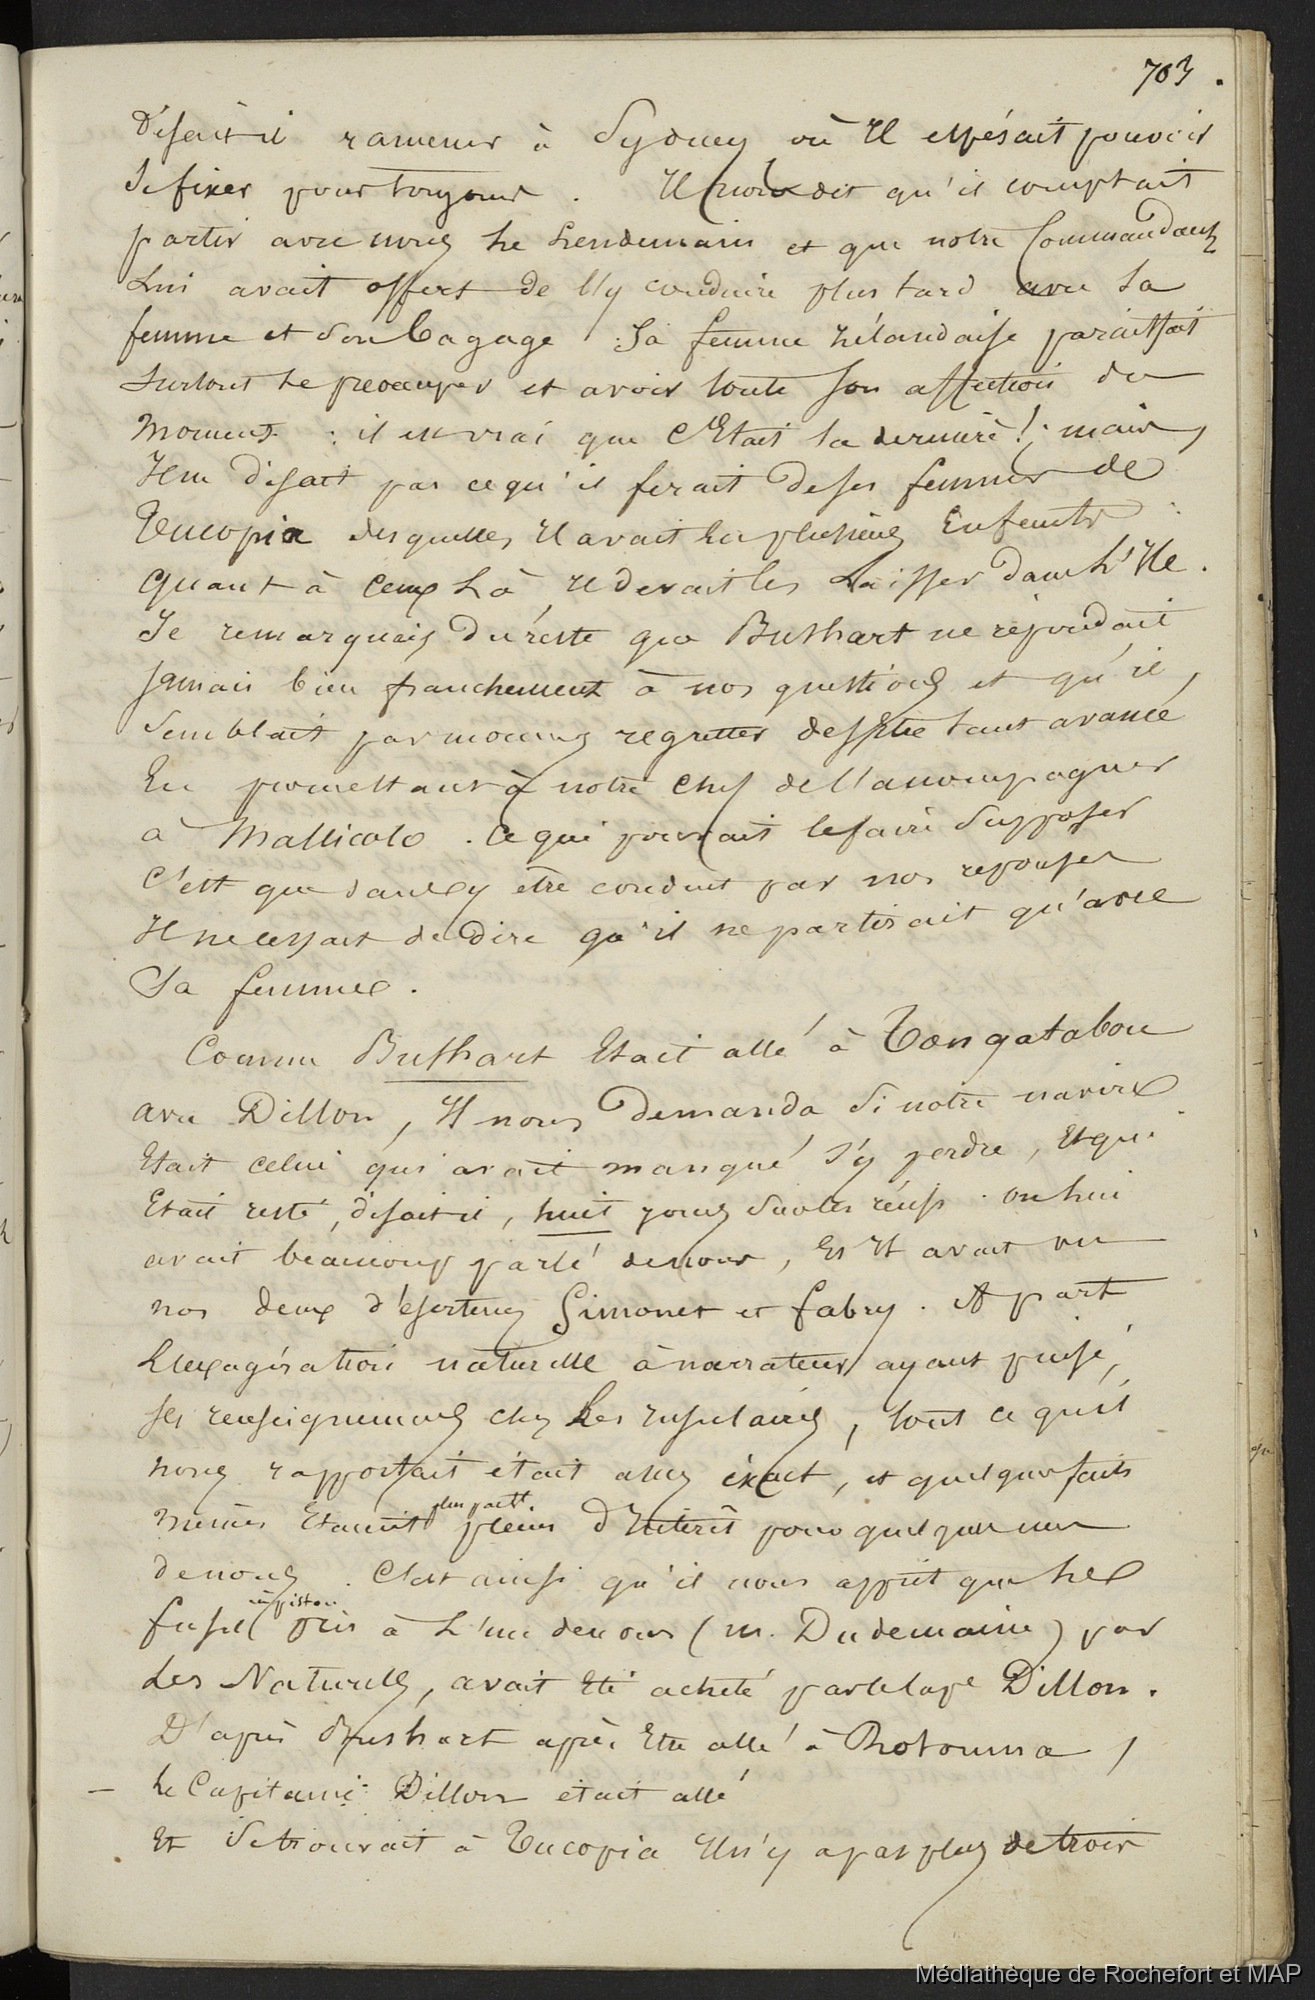 703.
disait il ramener à Sydney où Il espérait pouvoir
se fixer pour toujours. Il nous dit qu'il comptait
partir avec nous le Lendemain et que notre Commandant
Lui avait offert de l'y conduire plus tard avec Sa
femme et Son bagage. Sa femme zélandaise paraissait
Surtout le préocuper et avoir toute Son affection du
Moment : il est vrai que c'Etait la dernière! mais,
Il ne disait pas ce qu'il ferait de ses femmes de
Tucopia desquelles Il avait eu plusieurs Enfants.
Quant à Ceux Là, Il devait les Laisser dans L'Ile.
Je remarquais du reste que Bushart ne répondait
jamais bien franchement à nos questions et qu'il,
Semblait par momens regretter de s'être tant avancé
En promettant à notre chef de l'acompagner
à Mallicolo. Ce qui pourrait le faire Supposer
C'est que sans y être conduit par nos réponses
Il ne cessait de Dire qu'il ne partirait qu'avec
Sa femme.
Comme Bushart Etait allé à Tongatabou
avec Dillon, Il nous Demanda Si notre navire
Etait celui qui avait manqué s'y perdre, Et qui
Etait resté, disait il, huit jours Sur les récifs. on Lui
avait beaucoup parlé de nous, Et Il avait vu
nos deux déserteurs Simonet et fabry. A part
L'exagération naturelle à narrateur ayant puisé,
ses renseignemens chez Les Insulaires, tout ce qu'il
nous rapportait était assez exact, et quelques faits
mêmes Etaient plus partt. pleins d'Intérêt pour quelques uns
de nous. C'est ainsi qu'il nous apprit que Le
fusil à piston pris à L'un de nous (m. Dudemaine) par
Les Naturels, avait Eté acheté par le Cape Dillon.
D'après Bushart après Etre allé à Rotouma,
— Le Capitaine Dillon était allé
Et Se trouvait à Tucopia Il n'y a pas plus de trois